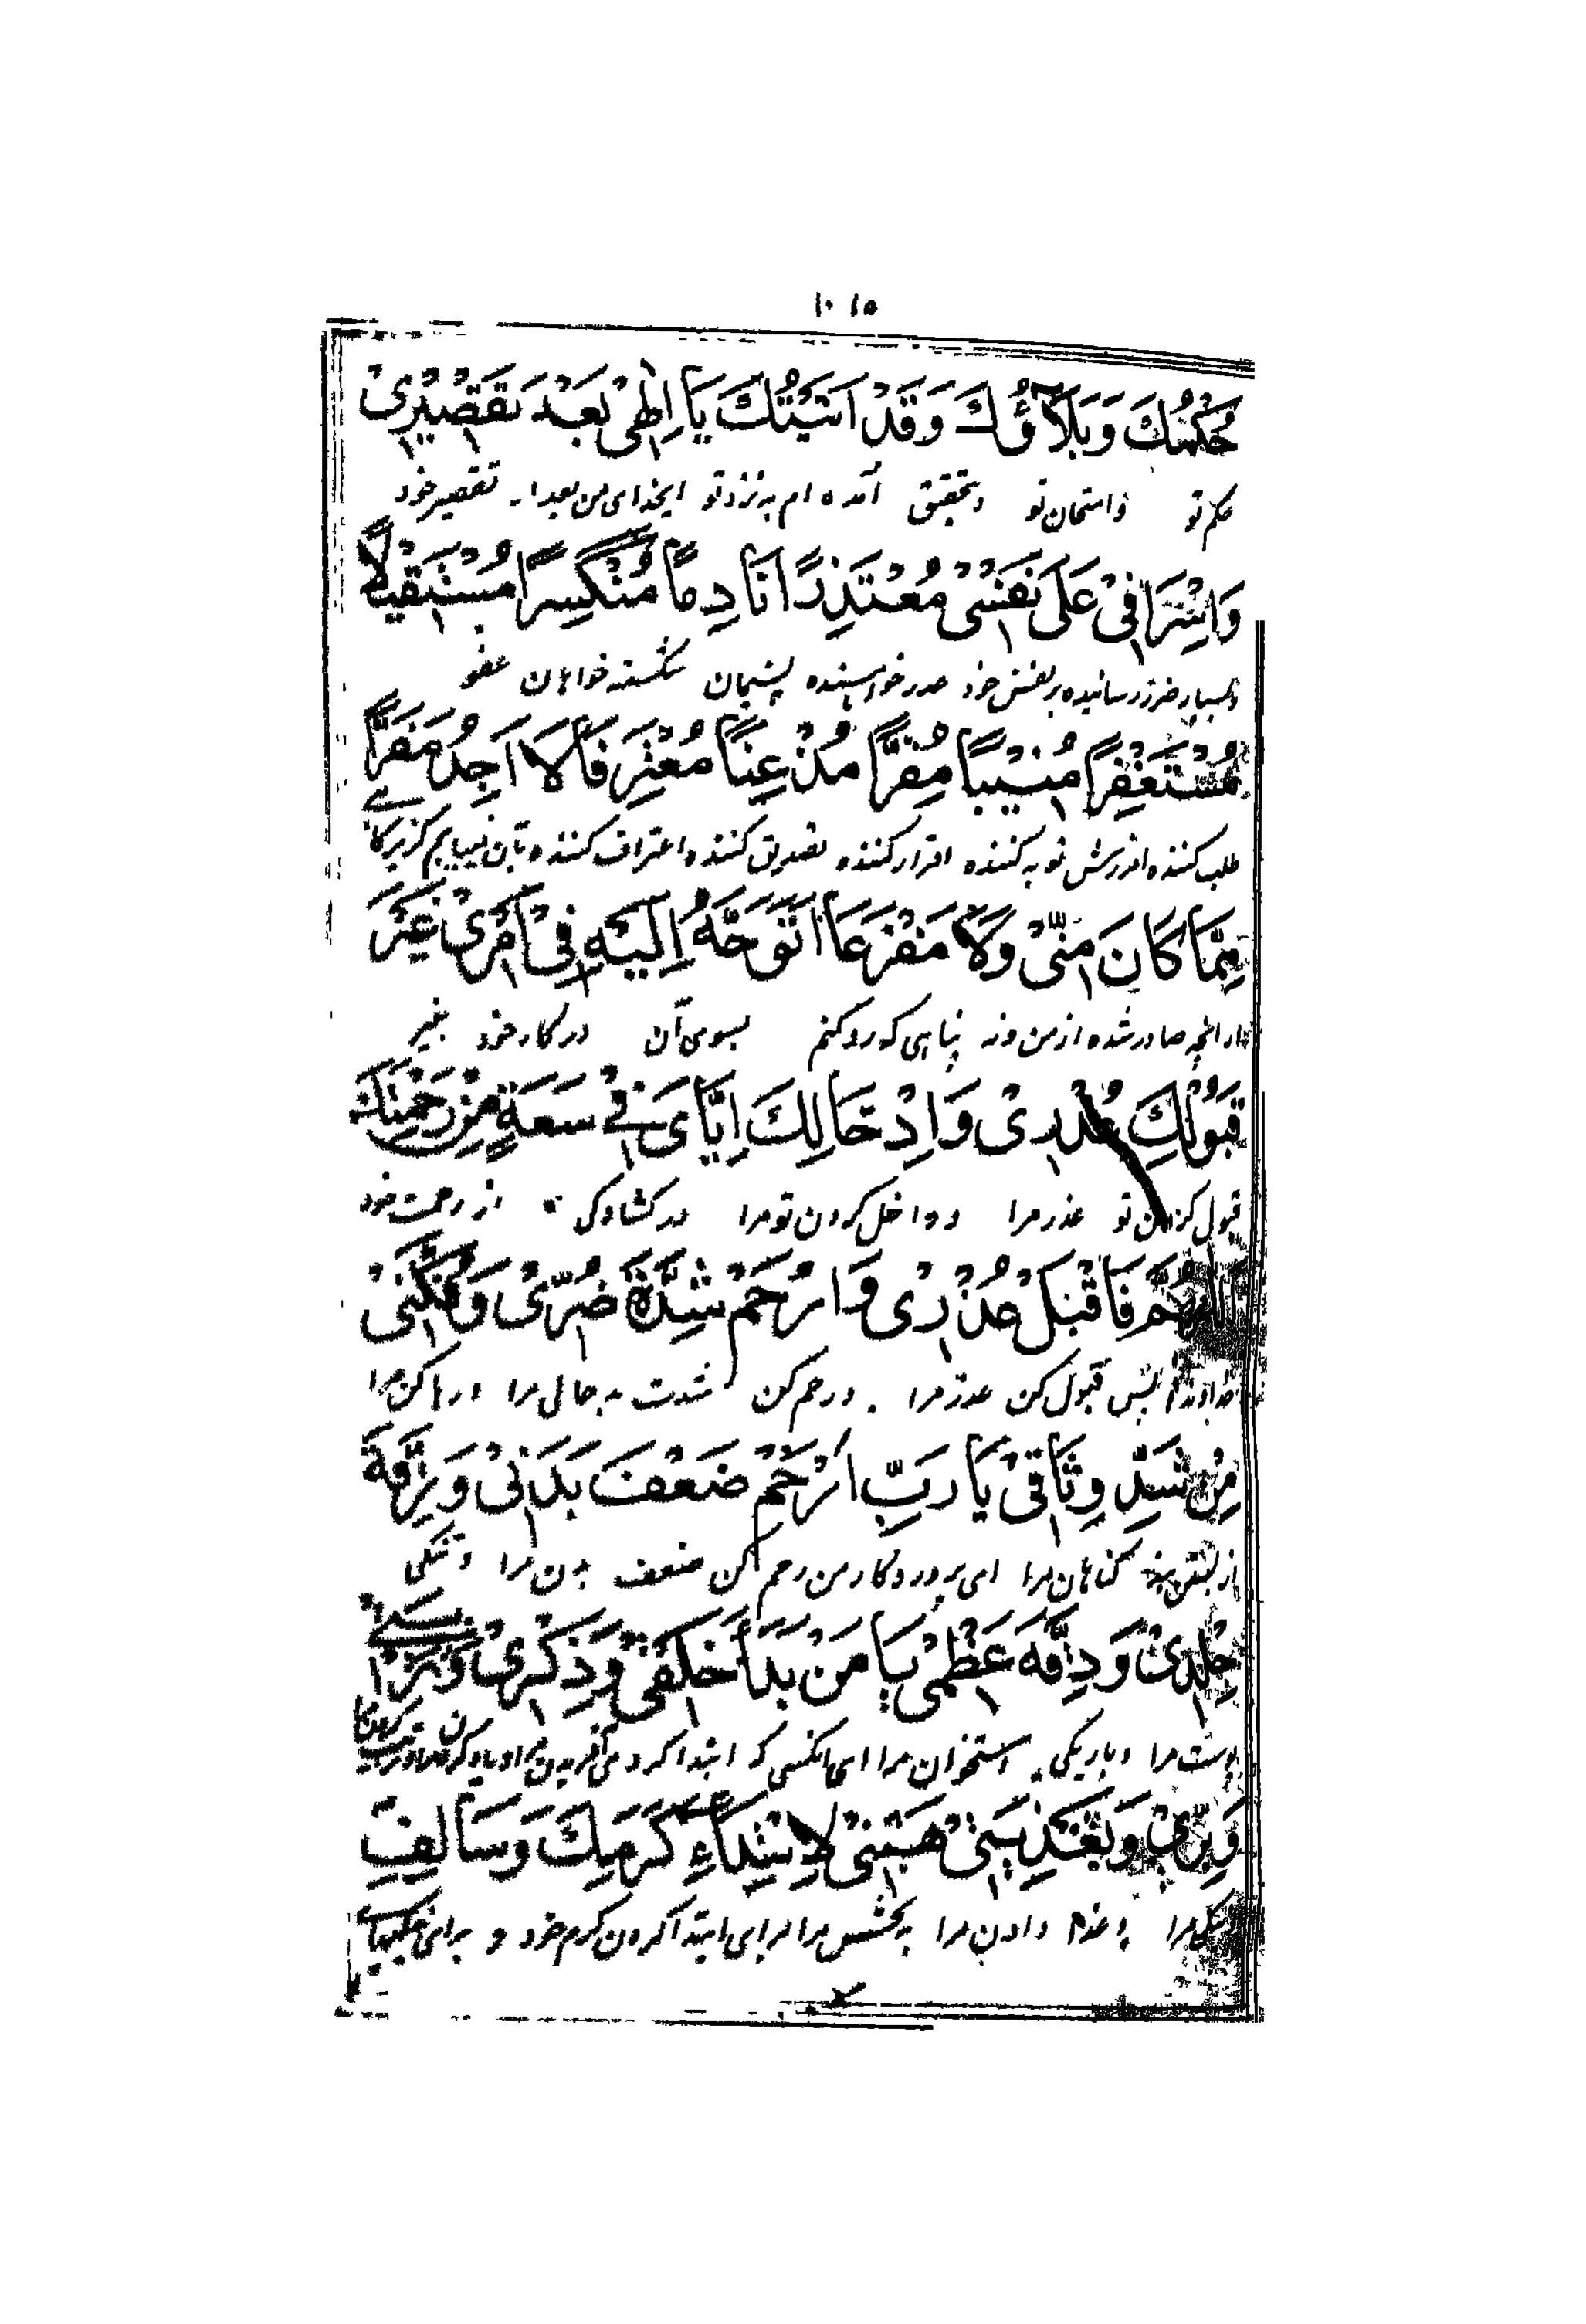 ۱۰۱۵
حُكْمُكَ وَبَلَاؤُكَ وَقَدْ اَتَيْتُكَ يَا اِلٰهِىْ بَعْدَ تَقْصِيْرِىْ
حکم تو وامتحان تو وبتحقیق آمده ام به نزد تو ایخدای من بعد از تقصیر خود
وَاِسْرَافِىْ عَلٰى نَفْسِىْ مُعْتَذِرًا نَادِمًا مُنْكَسِرًا مُسْتَقِيْلًا
رسانیده بر نفس خود عذر خواهنده پشیمان شکسته خواهان عفو
مُسْتَغْفِرًا مُنِيْبًا مُقِرًّا مُذْعِنًا مُعْتَرِفًا لَا اَجِدُ مَفَرًّا
طلب کننده امرزش توبه کننده اقرار کننده تصدیق کننده اعتراف کننده نمییابم گریزگاهے
مِمَّا كَانَ مِنِّىْ وَلَا مَفْزَعًا اَتَوَجَّهُ اِلَيْهِ فِىْ اَمْرِىْ غَيْرَ
از انچه صادر شده از من ونه پناهی که رو کنم بسوی آن در کار خود بغیر
قَبُوْلِكَ عُذْرِىْ وَاِدْخَالِكَ اِيَّاىَ فِىْ سَعَةٍ مِنْ رَحْمَتِكَ
قبول کردن تو عذر مرا و داخل کردن تو مرا در کشادگی از رحمت خود
اَللّٰهُمَّ فَاقْبَلْ عُذْرِىْ وَارْحَمْ شِدَّةَ ضُرِّىْ وَفُكَّنِىْ
خداوندا پس قبول کن عذر مرا ورحم کن شدت بد حالی مرا ورها کن مرا
مِنْ شَدِّ وِثَاقِىْ يَا رَبِّ ارْحَمْ ضَعْفَ بَدَنِىْ وَرِقَّةَ
از گناهان مرا ای پروردگار من رحم کن ضعف بدن مرا وتنکی
جِلْدِىْ وَدِقَّةَ عَظْمِىْ يَا مَنْ بَدَأَ خَلْقِىْ وَذِكْرِىْ وَتَرْبِيَتِىْ
پوست مرا وباریکی استخوان مرا ای انکسی که ابتدا کرد
وَبِرِّىْ وَتَغْذِيَتِىْ هَبْنِىْ لِاِبْتِدَاءِ كَرَمِكَ وَسَالِفِ
مرا وغذا دادن مرا به بخشش مرا برای ابتدا کردن کرم خود و برای